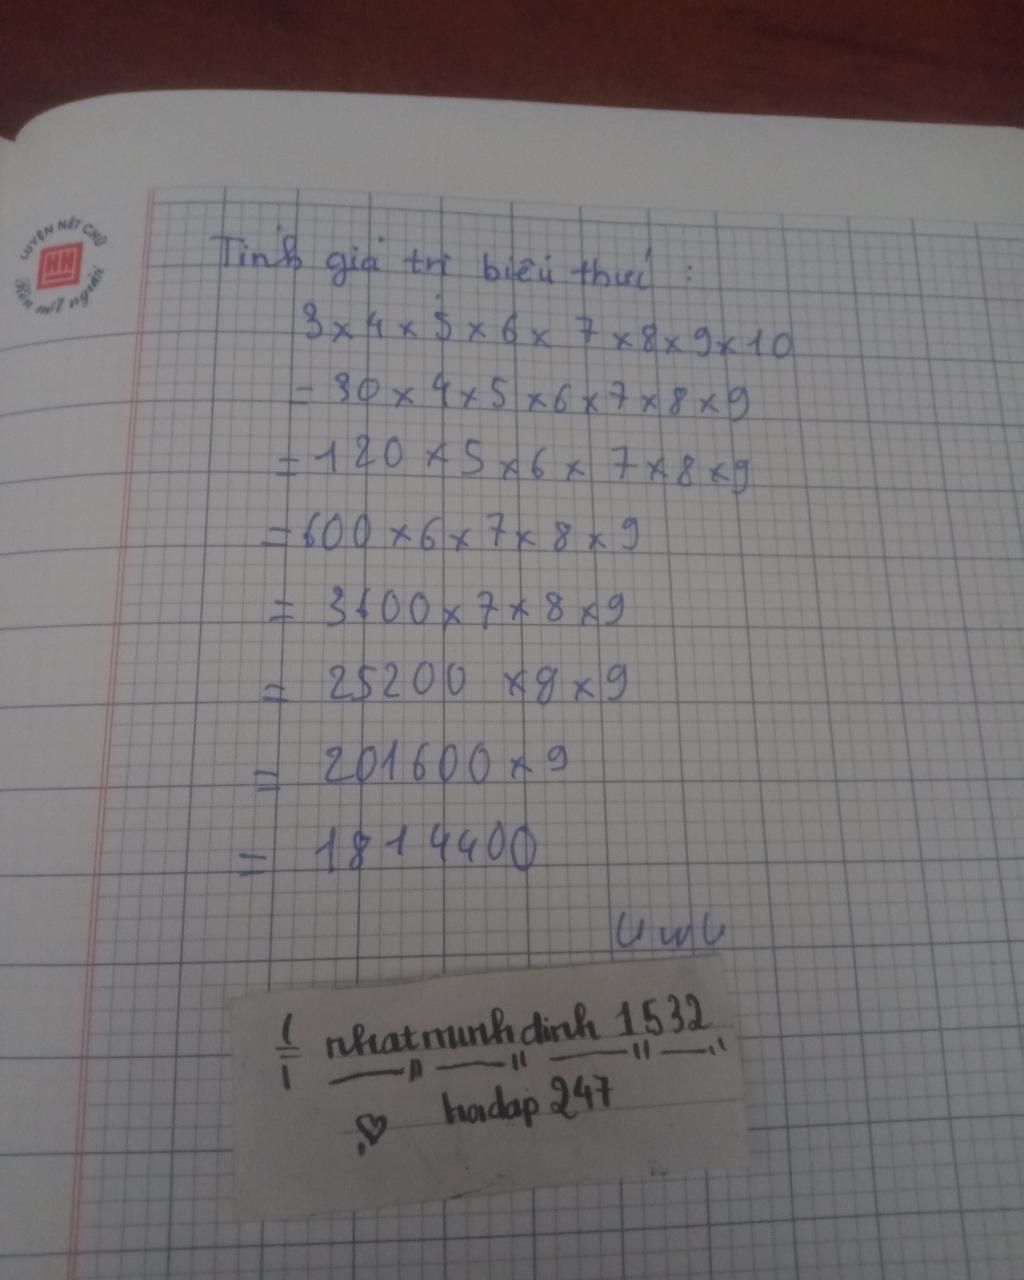 LUYỆN NÉT CHỮ
HH
Rèn nết người
Tính giá trị biểu thức :
3 x 4 x 5 x 6 x 7 x 8 x 9 x 10
= 30 x 4 x 5 x 6 x 7 x 8 x 9
= 120 x 5 x 6 x 7 x 8 x 9
= 600 x 6 x 7 x 8 x 9
= 3600 x 7 x 8 x 9
= 25200 x 8 x 9
= 201600 x 9
= 1814400
UwU
nhatminhdinh 1532
hoidap 247